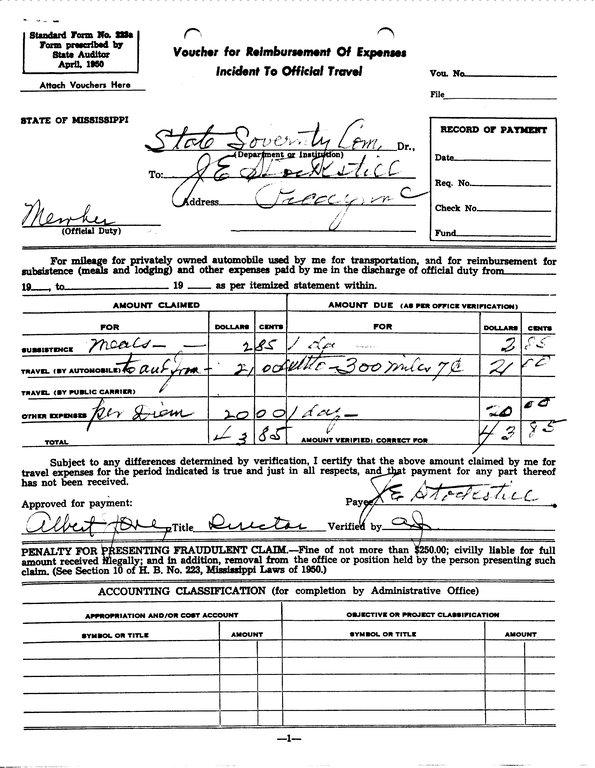 Standard Form No. 223a
Form prescribed by
State Auditor
April, 1950
Attach Vouchers Here
Voucher for Reimbursement Of Expenses
Incident To Official Travel
Vou. No.
File
STATE OF MISSISSIPPI
State Sovernty Com. Dr.,
(Department or Institution)
To: J E Stockstill
Address
Member
(Official Duty)
RECORD OF PAYMENT
Date
Req. No.
Check No.
Fund
For mileage for privately owned automobile used by me for transportation, and for reimbursement for
subsistence (meals and lodging) and other expenses paid by me in the discharge of official duty from
19 , to 19 as per itemized statement within.
AMOUNT CLAIMED AMOUNT DUE (AS PER OFFICE VERIFICATION)
FOR DOLLARS CENTS FOR DOLLARS CENTS
SUBSISTENCE meals - - 2 85 1 da 2 85
TRAVEL (BY AUTOMOBILE) to and from - 21 00 300 miles 7¢ 21 00
TRAVEL (BY PUBLIC CARRIER)
OTHER EXPENSES per Diem 20 00 1 day - 20 00
TOTAL 43 85 AMOUNT VERIFIED: CORRECT FOR 43 85
Subject to any differences determined by verification, I certify that the above amount claimed by me for
travel expenses for the period indicated is true and just in all respects, and that payment for any part thereof
has not been received.
Payee J E Stockstill
Approved for payment:
Albert Jones Title Director Verified by aJ
PENALTY FOR PRESENTING FRAUDULENT CLAIM.—Fine of not more than $250.00; civilly liable for full
amount received illegally; and in addition, removal from the office or position held by the person presenting such
claim. (See Section 10 of H. B. No. 223, Mississippi Laws of 1950.)
ACCOUNTING CLASSIFICATION (for completion by Administrative Office)
APPROPRIATION AND/OR COST ACCOUNT OBJECTIVE OR PROJECT CLASSIFICATION
SYMBOL OR TITLE AMOUNT SYMBOL OR TITLE AMOUNT
—1—